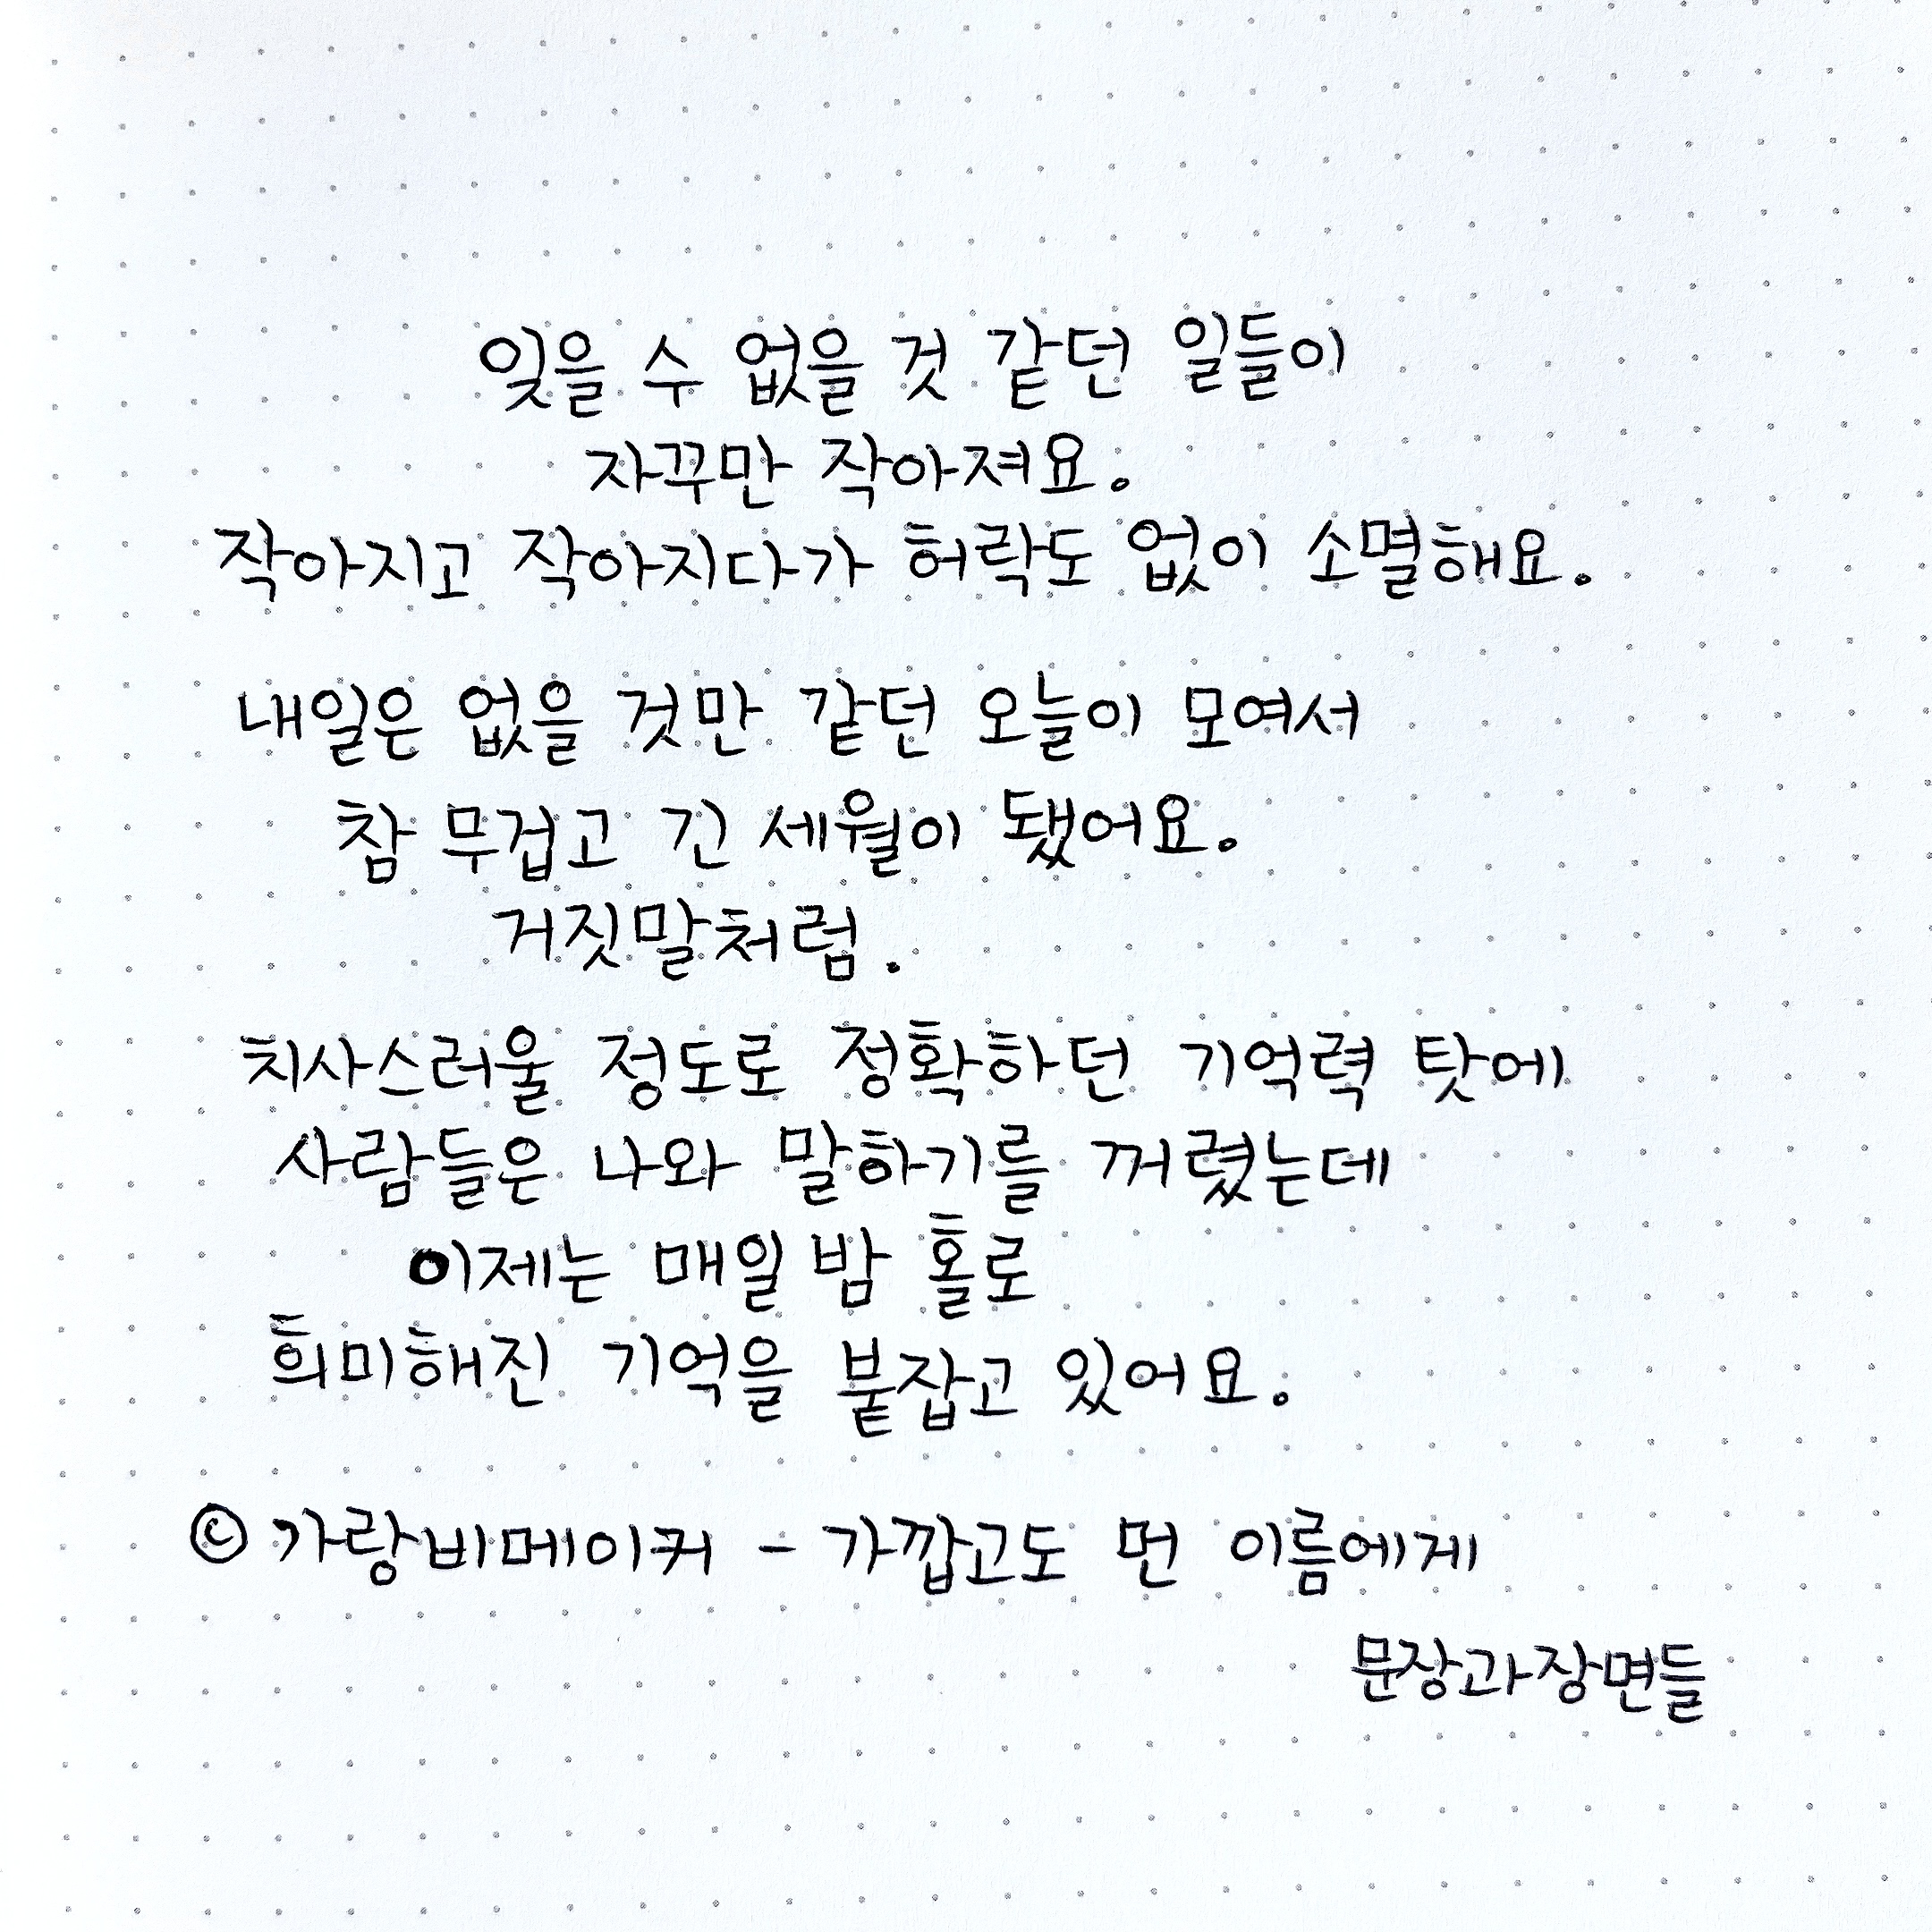 잊을 수 없을 것 같던 일들이
자꾸만 작아져요.
작아지고 작아지다가 허락도 없이 소멸해요.
내일은 없을 것만 같던 오늘이 모여서
참 무겁고 긴 세월이 됐어요.
거짓말처럼.
치사스러울 정도로 정확하던 기억력 탓에
사람들은 나와 말하기를 꺼렸는데
이제는 매일 밤 홀로
희미해진 기억을 붙잡고 있어요.
© 가랑비메이커 - 가깝고도 먼 이름에게
문장과장면들